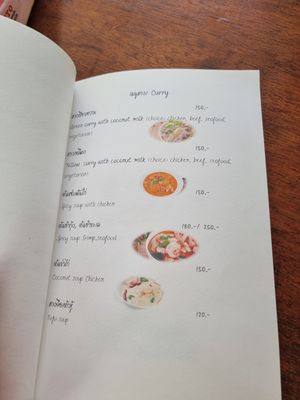 เมนูแกง Curry
แกงเขียวหวาน 150.-
Green curry with coconut milk (choice: chicken, beef, seafood,
vegetarian)
150.-
Yellow curry with coconut milk (choice: chicken, beef, seafood,
vegetarian)
150.-
Spicy soup with chicken
ต้มยำกุ้ง, ต้มยำทะเล 180.-/ 250.-
Spicy soup Srimp, seafood
ต้มข่าไก่ 150.-
Coconut soup Chicken
120.-
Tofu soup